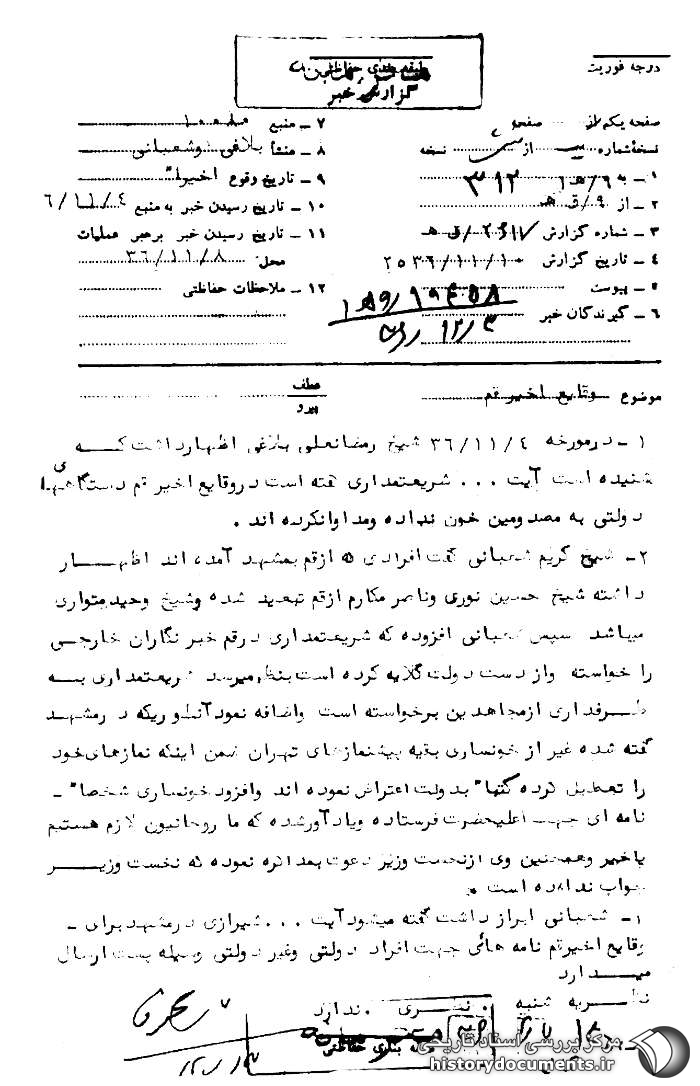 درجه فوریت
طبقه بندی حفاظتی
گزارش خبر
صفحه یکم از صفحه
نسخه شماره از نسخه
۱ـ به ۹/ه‍ ۳۱۲
۲ـ از ۹/ق ه‍
۳ـ شماره گزارش ق ه‍
۴ـ تاریخ گزارش ۲۵۳۶/۱۱/۱۰
۵ـ پیوست
۶ـ گیرندگان خبر
۷ـ منبع
۸ـ منشأ بلاغی و شعبانی
۹ـ تاریخ وقوع اخیرا"
۱۰ـ تاریخ رسیدن خبر به منبع ۶/۱۱/۴
۱۱ـ تاریخ رسیدن خبر برهبر عملیات
محل ۳۶/۱۱/۸
۱۲ـ ملاحظات حفاظتی
موضوع وقایع اخیر قم
عطف
پیرو
۱ـ درمورخه ۳۶/۱۱/۴ شیخ رمضانعلی بلاغی اظهارداشت که
شنیده است آیت ... شریعتمداری گفته است دروقایع اخیر قم دستگاههای
دولتی به مصدومین خون نداده ومداوانکرده اند .
۲ـ شیخ کریم شعبانی گفت افرادی که ازقم بمشهد آمده اند اظهار
داشته شیخ حسین نوری وناصر مکارم ازقم تبعید شده وشیخ وحید متواری
میباشد سپس شعبانی افزوده که شریعتمداری درقم خبرنگاران خارجی
را خواسته واز دست دولت گلایه کرده است بنظر میرسد شریعتمداری به
طرفداری ازمجاهدین برخواسته است واضافه نمود آنطوریکه درمشهد
گفته شده غیر از خونساری بقیه پیشنمازهای تهران ضمن اینکه نمازهای خود
را تعطیل کرده کتبا" بدولت اعتراض نموده اند وافزود خونساری شخصا" ـ
نامه ای جهت اعلیحضرت فرستاده ویادآورشده که ما روحانیون لازم هستیم
یاخیر وهمچنین وی ازنخست وزیر دعوت بمذاکره نموده که نخست وزیر
جواب نداده است .
۱ـ شعبانی ابراز داشت گفته میشود آیت ... شیرازی درمشهد برای ـ
وقایع اخیرقم نامه هائی جهت افراد دولتی وغیر دولتی وسیله پست ارسال
میدارد
نظریه شنبه . نظری ندارد
طبقه بندی حفاظتی
مرکز بررسی اسناد تاریخی
historydocuments.ir